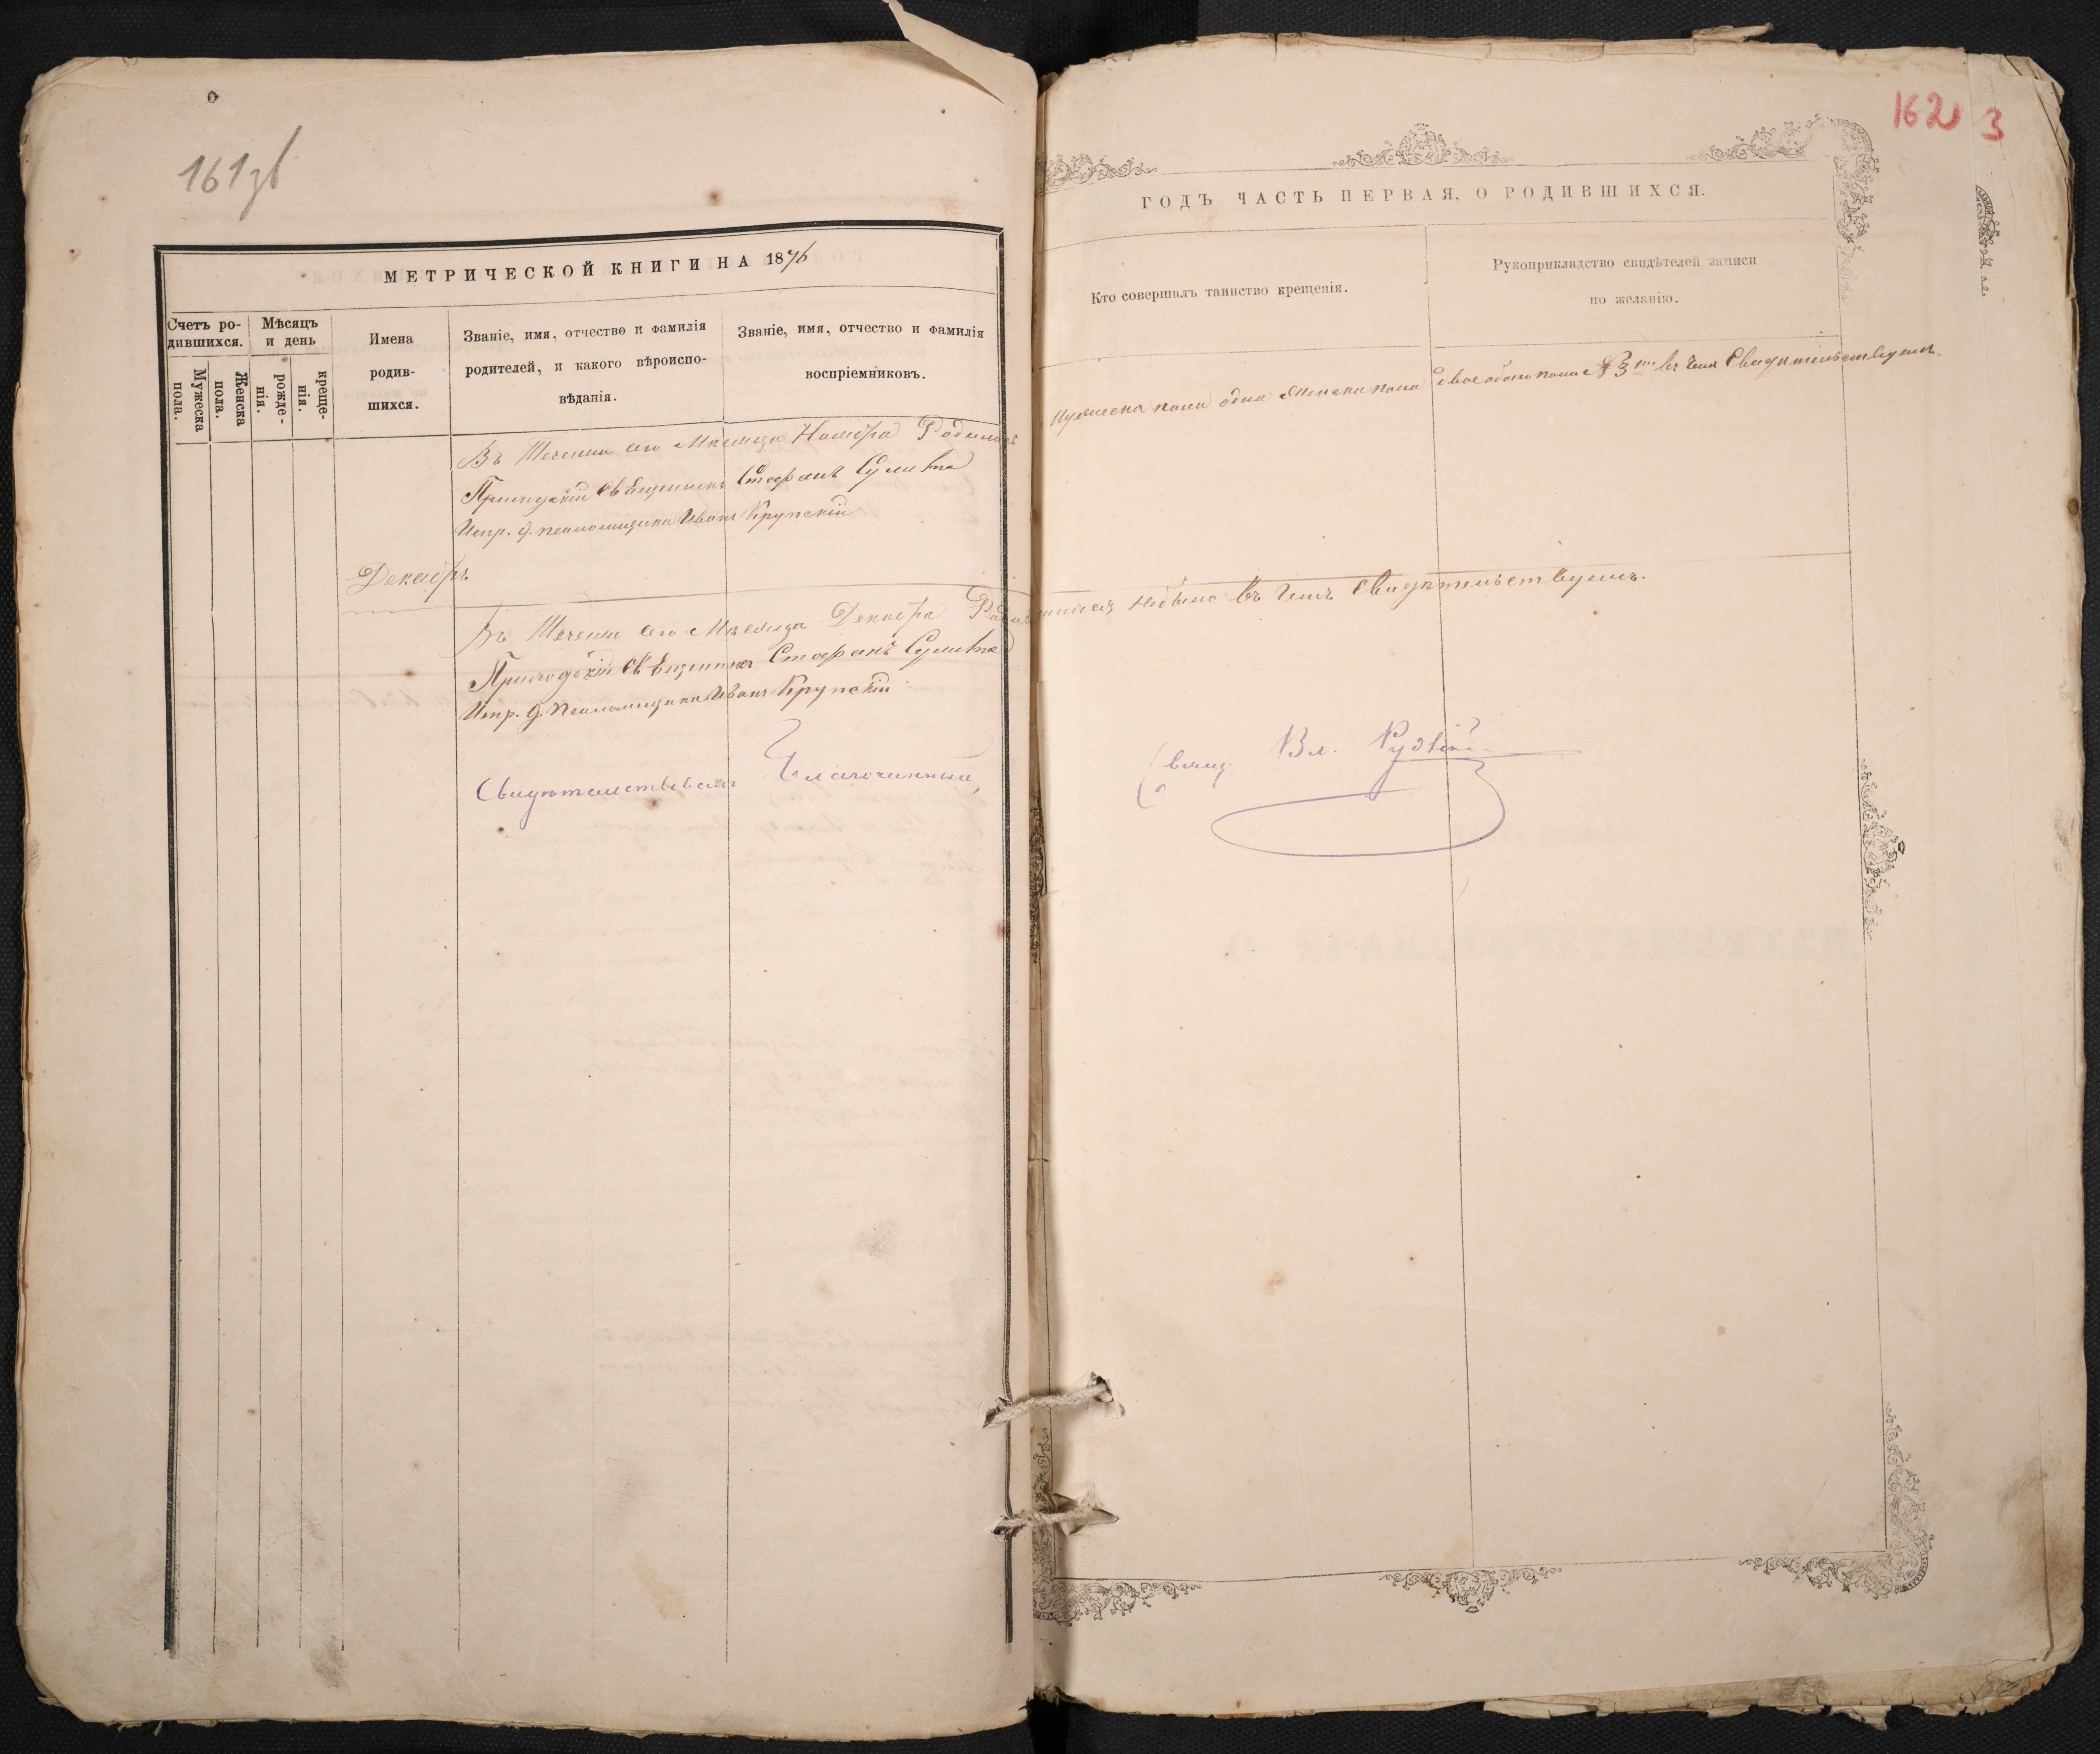 161зв
162 3
МЕТРИЧЕСКОЙ КНИГИ НА 1876
ГОДЪ ЧАСТЬ ПЕРВАЯ, О РОДИВШИХСЯ.
Счетъ ро-
дившихся.
Мужеска
пола.
Женска
пола.
Мѣсяцъ
и день
рожде-
нія.
креще-
нія.
Имена
родив-
шихся.
Званіе, имя, отчество и фамилія
родителей, и какого вѣроиспо-
вѣданія.
Званіе, имя, отчество и фамилія
воспріемниковъ.
Кто совершалъ таинство крещенія.
Рукоприкладство свидѣтелей записи
по желанію.
Въ Теченіи сего Мѣсяца Ноября Родилось Мужеска пола одна Женска пола двое обоего пола 3 въ чемъ Свидѣтельствуемъ.
Приходскій Священникъ Стефанъ
Испр. д. псаломщика Иванъ Крупскій
Декабрь
Въ Теченіи сего Мѣсяца Декабря Родившихся небыло въ чемъ Свидѣтельствуемъ.
Приходскій Священникъ Стефанъ
Испр. д. Псаломщика Иванъ Крупскій
Свидѣтельствовалъ Благочинный, Свящ. Вл.